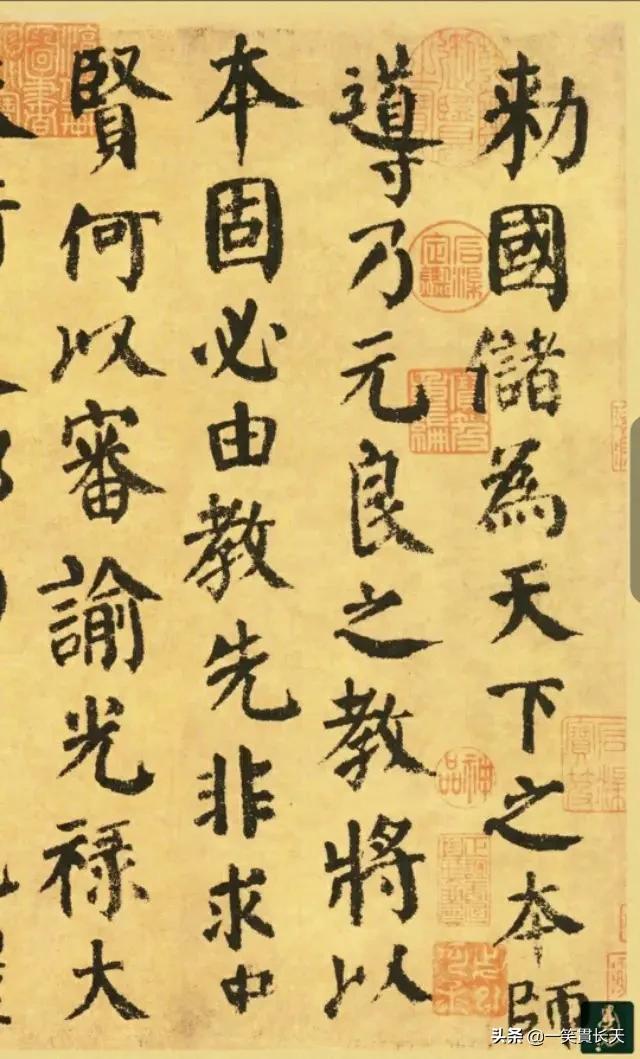 勑國儲為天下之本師
導乃元良之教將以
本固必由教先非求中
賢何以審諭光祿大
神品
头条 @一笑貫长天